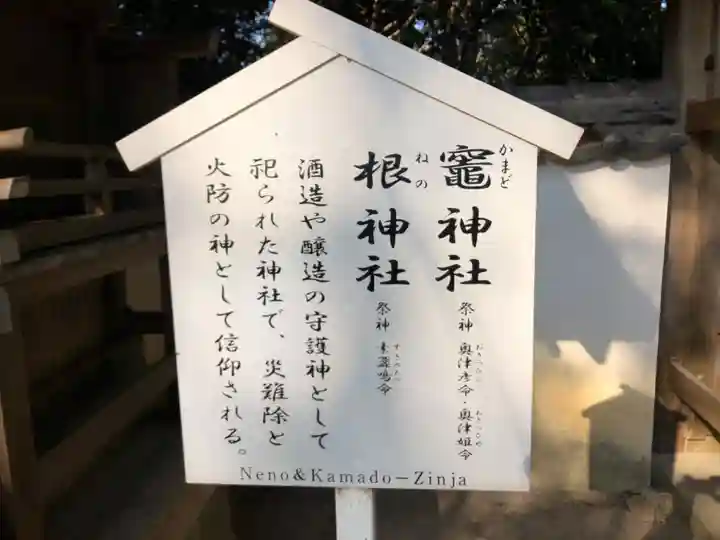 竈神社
かまど
祭神 奥津彦命・奥津姫命
おきつひこ おきつひめ
根神社
ねの
祭神 素盞嗚命
すさのおの
酒造や醸造の守護神として
祀られた神社で、災難除と
火防の神として信仰される。
Neno&Kamado-Zinja